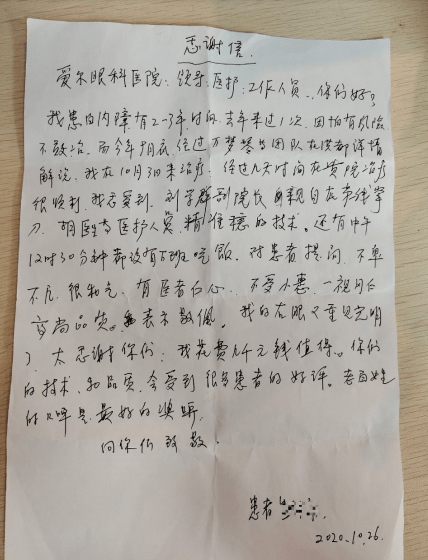 感谢信
爱尔眼科医院:领导:医护:工作人员、你们好?
我患白内障有2-3年时间,去年来过1次,因怕有风险
不敢治。而今年9月底,经过万梦琴与团队在 详情
解说,我在10月30来治疗,经过几天时间在贵院治疗
很顺利,我看到,刘学群副院长亲自在第线拿
刀,胡医生与医护人员,精准稳的技术。还有中午
12时30分钟都没有下班吃饭,对患者提问,不卑
不亢,很和气,有医者仁心,不受小惠,一视同仁
高尚品质。表示敬佩。我的左眼又重见光明
了,太感谢你们,我花费几千元钱值得。你们
的技术,和品质,会受到很多患者的好评。老百姓
的口碑是最好的奖
向你们致敬。
患者
2020.10.26.